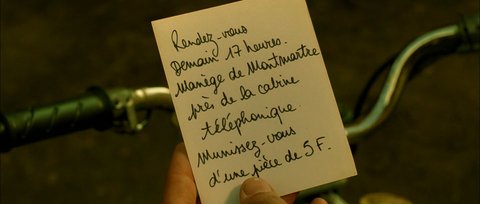 Rendez-vous
Demain 17 heures.
Manège de Montmartre
près de la cabine
téléphonique.
Munissez-vous
d'une pièce de 5 F.